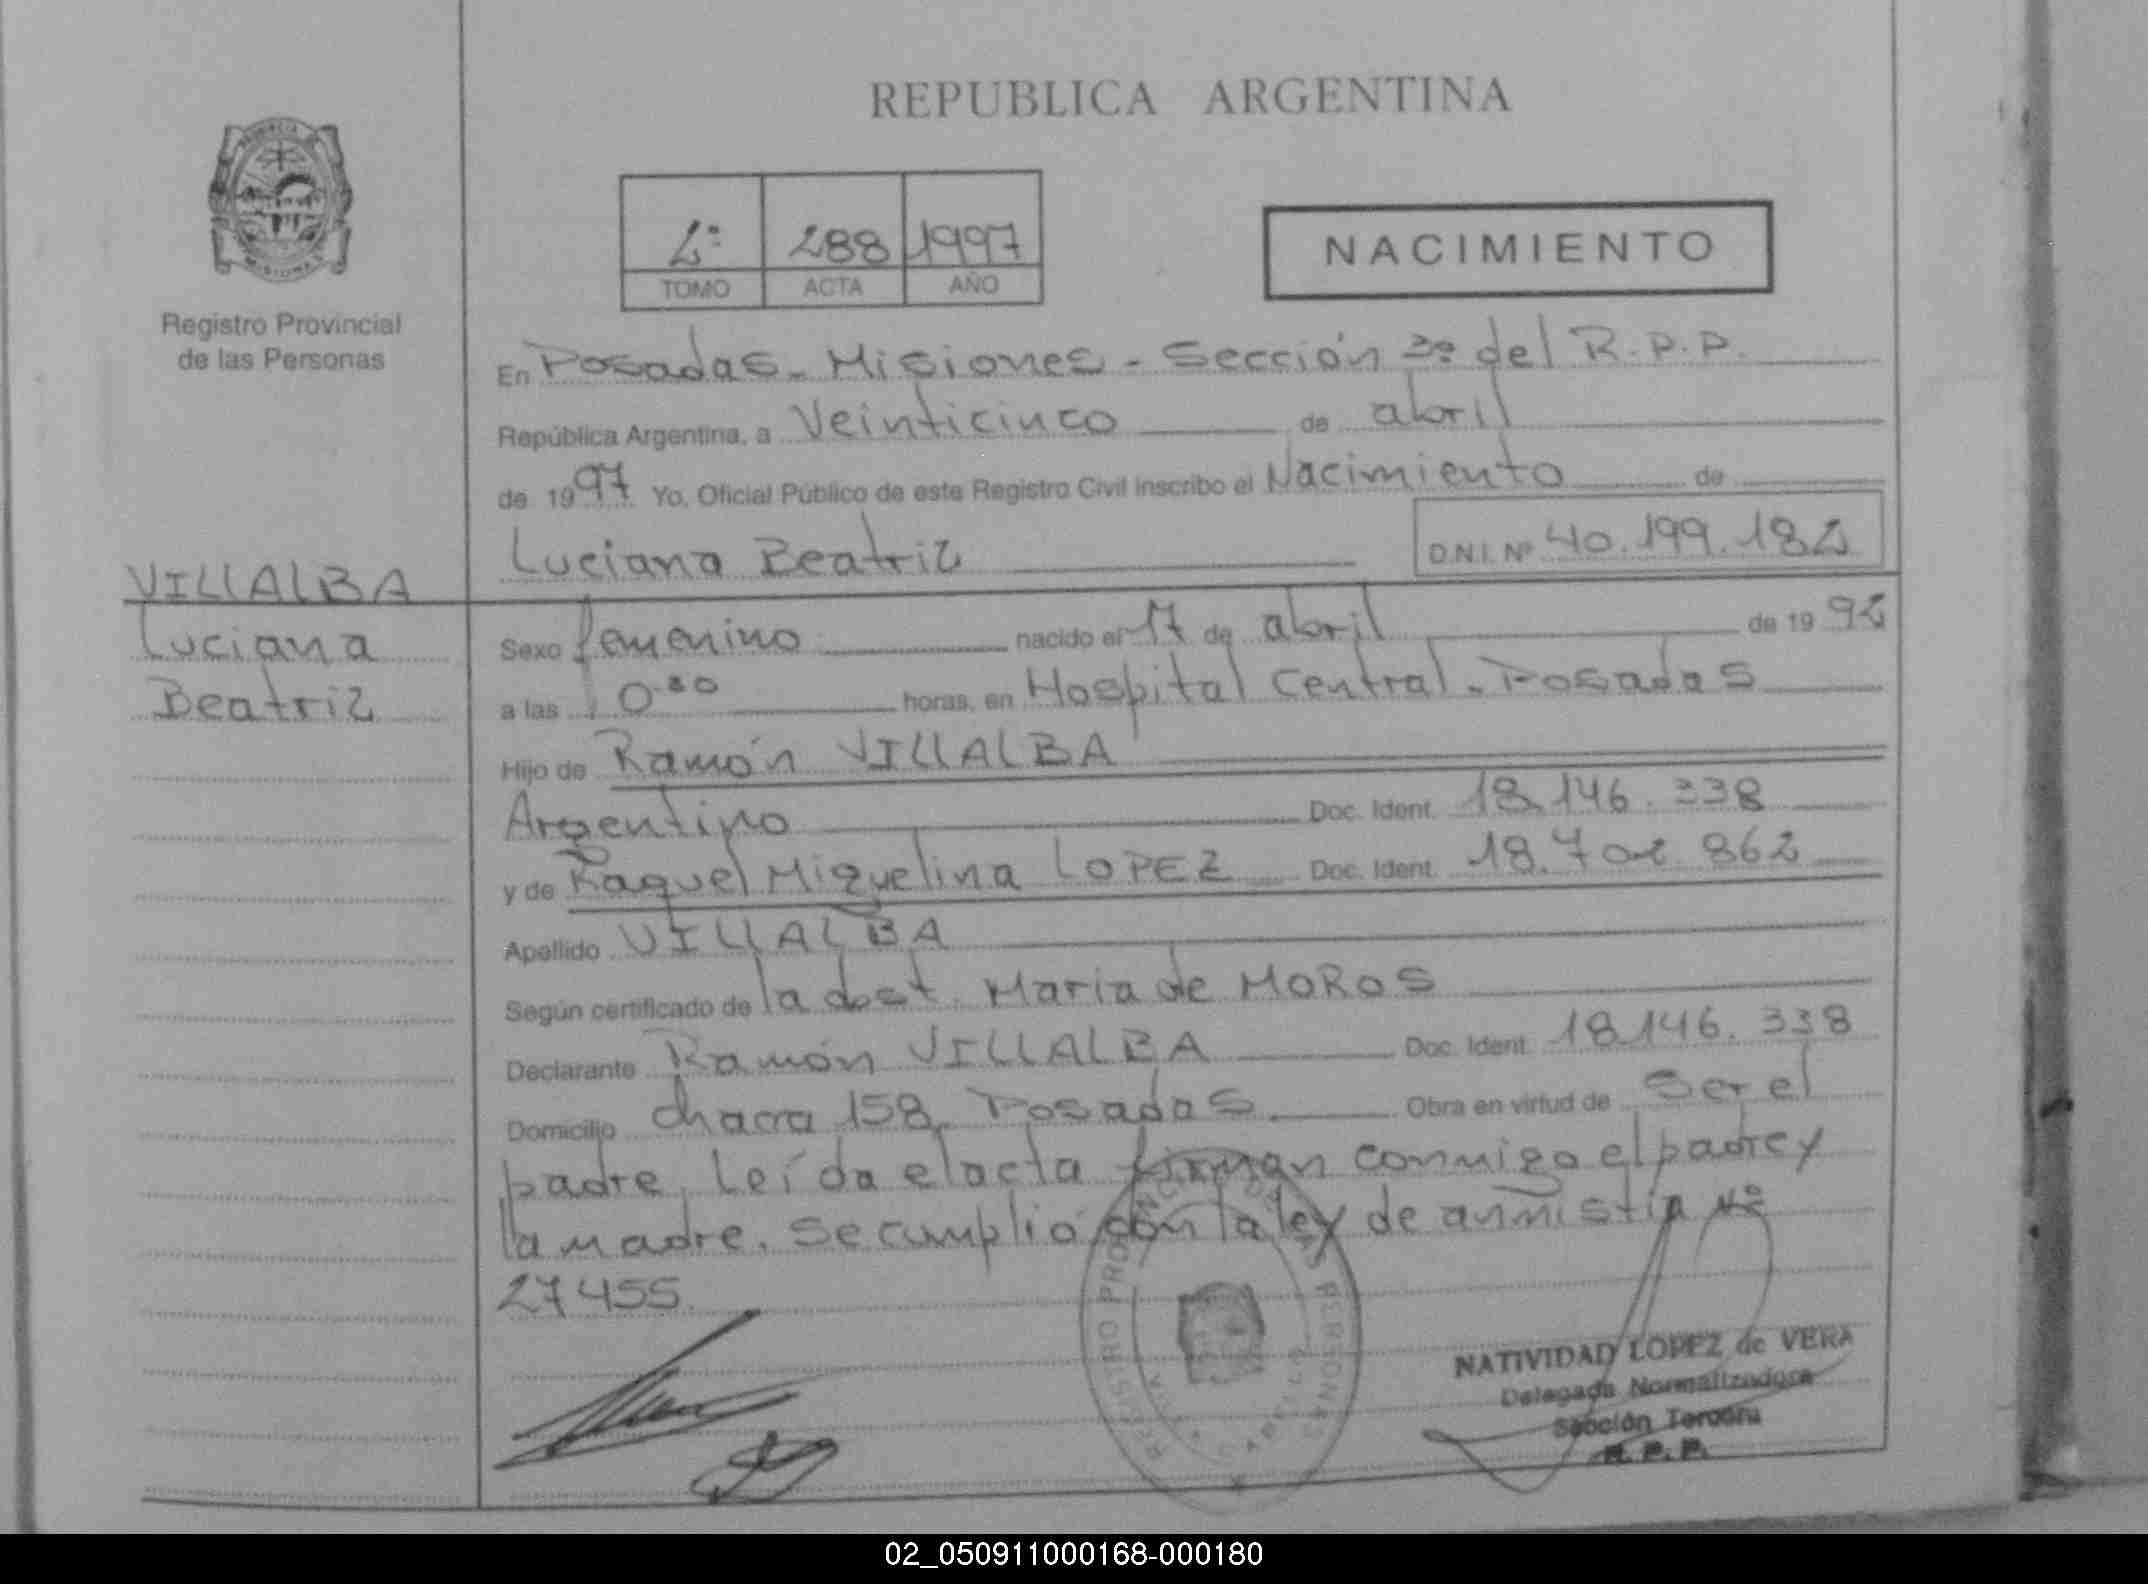 REPUBLICA ARGENTINA
2º 288 1997
TOMO ACTA AÑO
NACIMIENTO
Registro Provincial
de las Personas
En Posadas - Misiones - Sección 3º del R.P.P.
República Argentina, a Veinticinco de abril
de 1997 Yo, Oficial Público de este Registro Civil inscribo el Nacimiento de
Luciana Beatriz D.N.I. Nº 40.199.182
VILLALBA
Luciana
Beatriz
Sexo femenino nacido el 17 de abril de 1992
a las 0.30 horas, en Hospital Central - Posadas
Hijo de Ramón VILLALBA
Argentino Doc. Ident. 18.146.338
y de Raquel Miguelina LOPEZ Doc. Ident. 18.702.862
Apellido VILLALBA
Según certificado de la obst. Maria de MOROS
Declarante Ramón VILLALBA Doc. Ident. 18.146.338
Domicilio chacra 158, Posadas Obra en virtud de Ser el
padre, Leída el acta firman conmigo el padre y
la madre. Se cumplió con la ley de amnistia Nº
27455.
REGISTRO PROVINCIAL DE LAS PERSONAS
NATIVIDAD LOPEZ de VERA
Delegada Normalizadora
Sección Tercera
R. P. P.
02_050911000168-000180